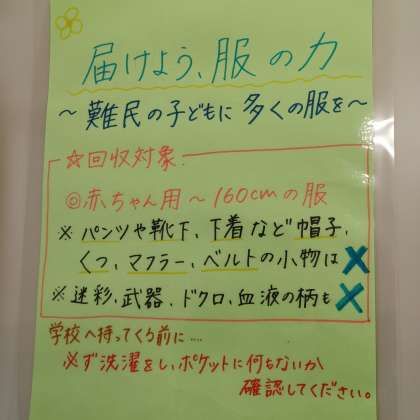 届けよう、服の力
～難民の子どもに多くの服を～
☆回収対象
◎赤ちゃん用～160cmの服
※パンツや靴下、下着など帽子、
くつ、マフラー、ベルトの小物は×
※迷彩、武器、ドクロ、血液の柄も×
学校へ持ってくる前に....
必ず洗濯をし、ポケットに何もないか
確認してください。